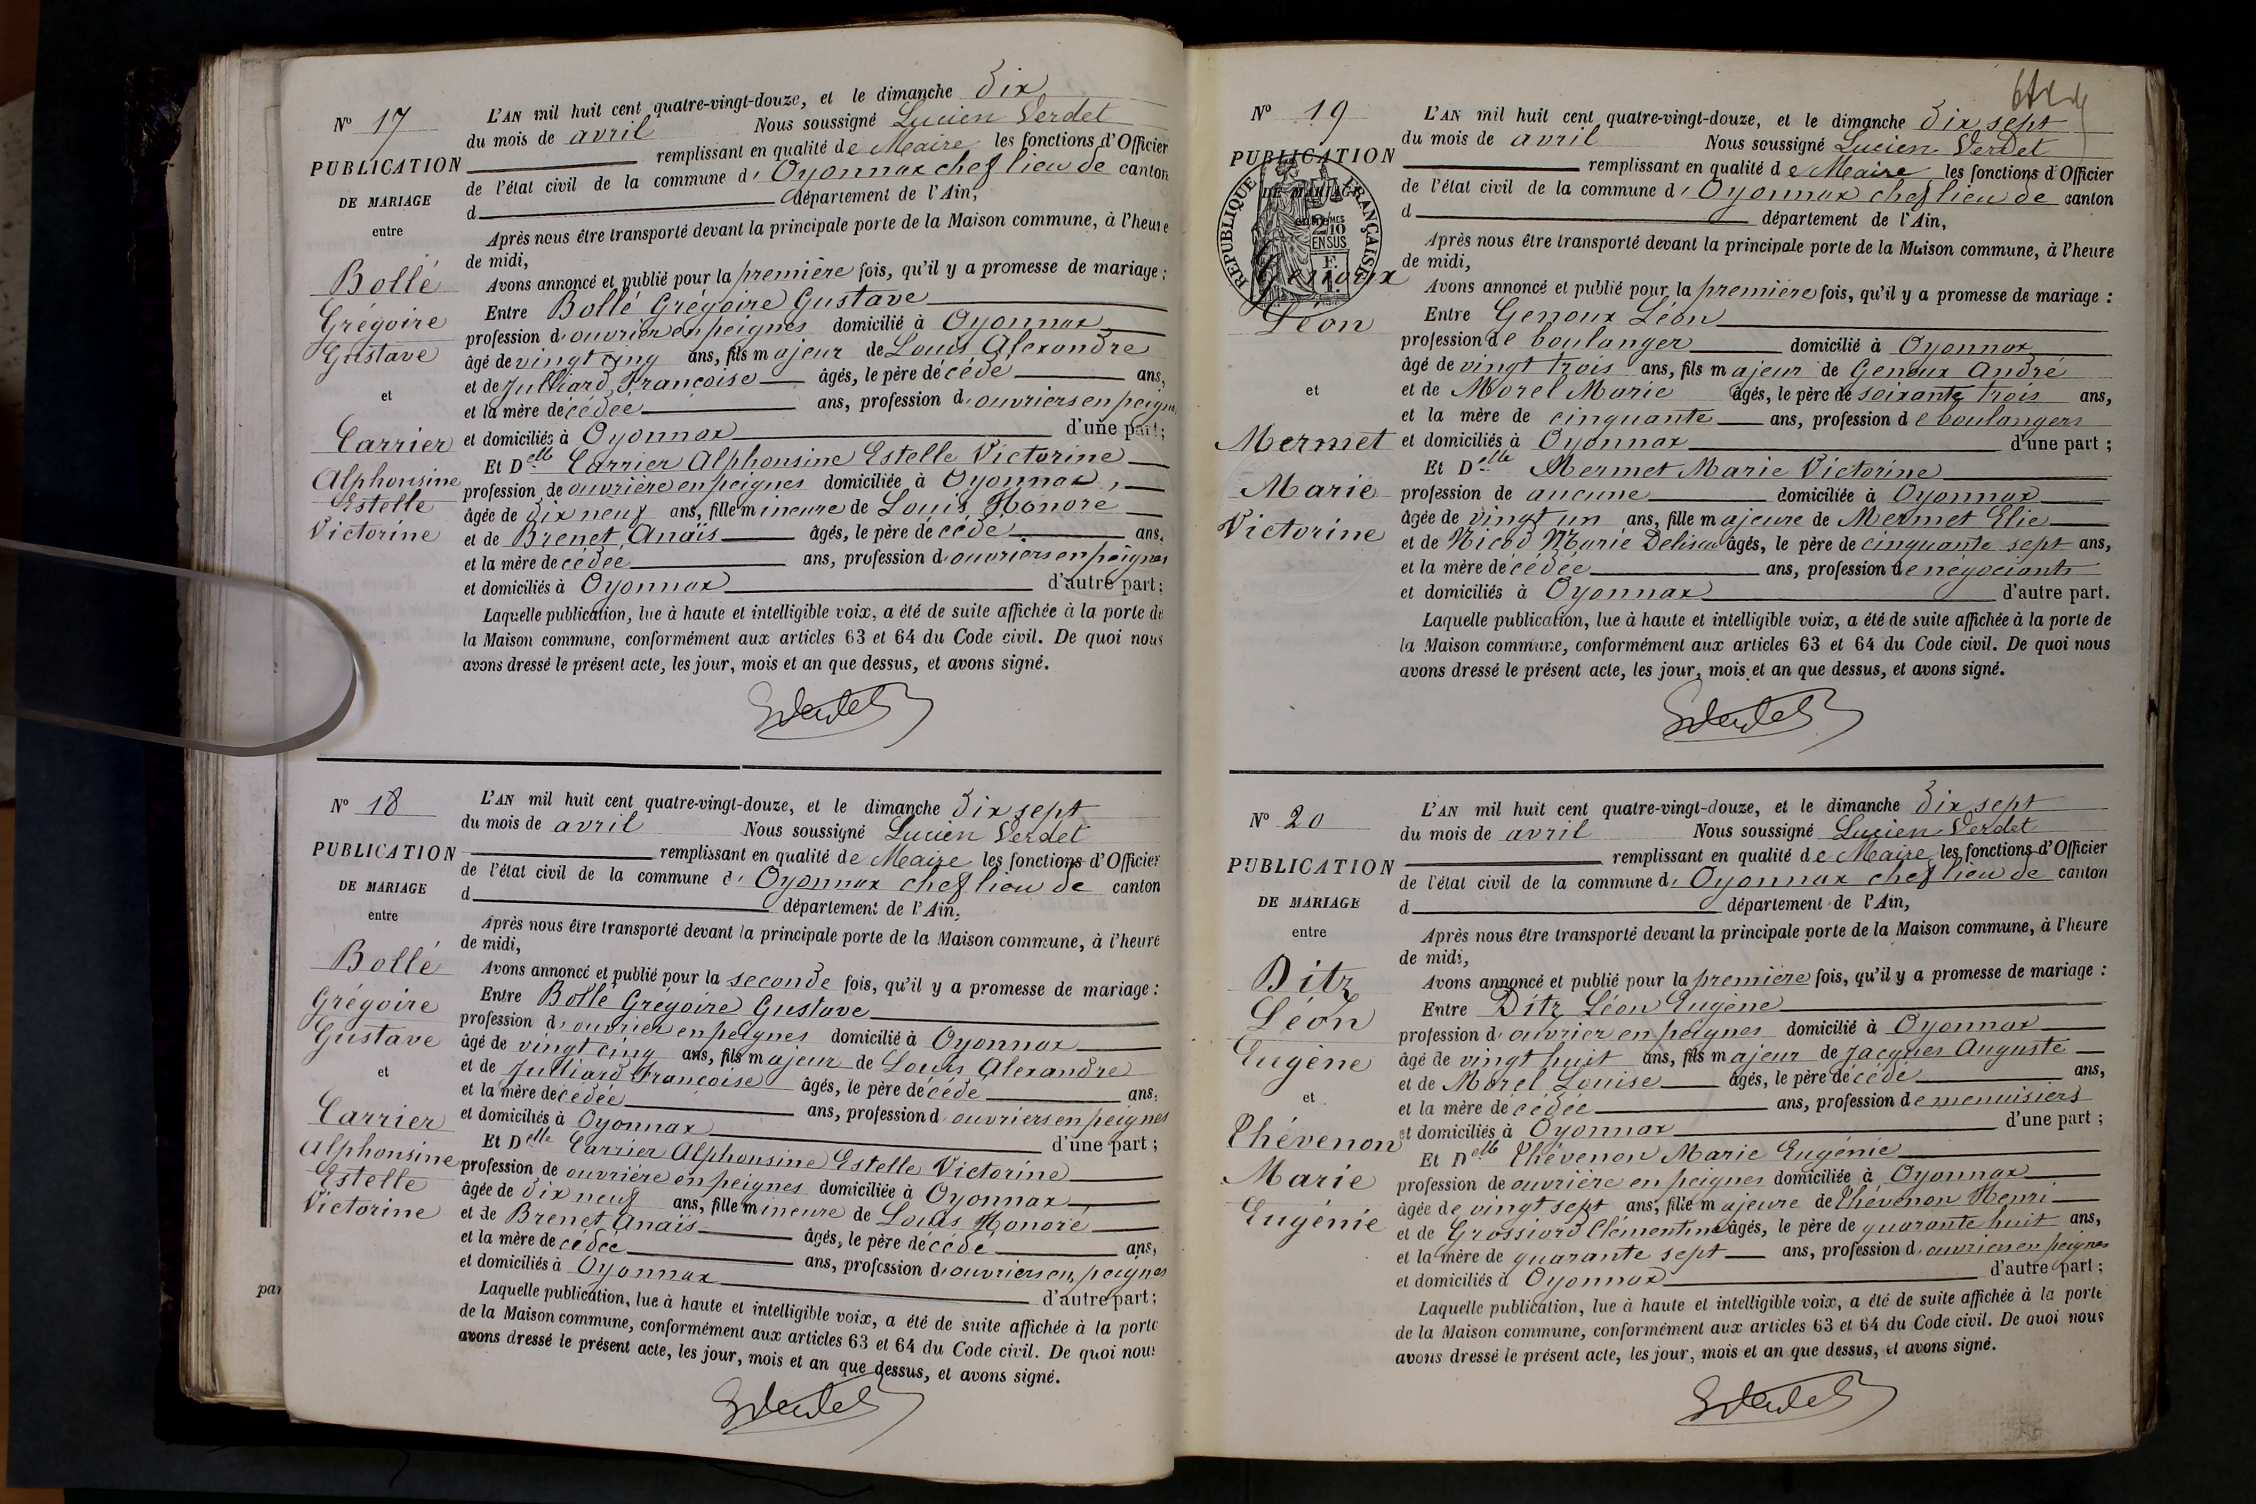 N° 17
PUBLICATION
DE MARIAGE
entre
Bollé
Grégoire
Gustave
et
Carrier
Alphonsine
Estelle
Victorine
L'AN mil huit cent quatre-vingt-douze, et le dimanche dix
du mois de avril Nous soussigné Lucien Verdet
remplissant en qualité de Maire les fonctions d'Officier
de l'état civil de la commune d' Oyonnax chef lieu de canton
d département de l'Ain,
Après nous être transporté devant la principale porte de la Maison commune, à l'heure
de midi,
Avons annoncé et publié pour la première fois, qu'il y a promesse de mariage :
Entre Bollé Grégoire Gustave
profession d'ouvrier en peignes domicilié à Oyonnax
âgé de vingt cinq ans, fils majeur de Louis Alexandre
et de Julliard Françoise âgés, le père décédé ans,
et la mère décédée ans, profession d'ouvriers en peignes
et domiciliés à Oyonnax d'une part;
Et Delle Carrier Alphonsine Estelle Victorine
profession de ouvrière en peignes domiciliée à Oyonnax,
âgée de dix neuf ans, fille mineure de Louis Honoré
et de Brenet Anaïs âgés, le père décédé ans,
et la mère décédée ans, profession d'ouvriers en peignes
et domiciliés à Oyonnax d'autre part;
Laquelle publication, lue à haute et intelligible voix, a été de suite affichée à la porte de
la Maison commune, conformément aux articles 63 et 64 du Code civil. De quoi nous
avons dressé le présent acte, les jour, mois et an que dessus, et avons signé.
N° 18
PUBLICATION
DE MARIAGE
entre
Bollé
Grégoire
Gustave
et
Carrier
Alphonsine
Estelle
Victorine
L'AN mil huit cent quatre-vingt-douze, et le dimanche dix sept
du mois de avril Nous soussigné Lucien Verdet
remplissant en qualité de Maire les fonctions d'Officier
de l'état civil de la commune d' Oyonnax chef lieu de canton
d département de l'Ain,
Après nous être transporté devant la principale porte de la Maison commune, à l'heure
de midi,
Avons annoncé et publié pour la seconde fois, qu'il y a promesse de mariage :
Entre Bollé Grégoire Gustave
profession d'ouvrier en peignes domicilié à Oyonnax
âgé de vingt cinq ans, fils majeur de Louis Alexandre
et de Julliard Françoise âgés, le père décédé ans,
et la mère décédée ans, profession d'ouvriers en peignes
et domiciliés à Oyonnax d'une part;
Et Delle Carrier Alphonsine Estelle Victorine
profession de ouvrière en peignes domiciliée à Oyonnax
âgée de dix neuf ans, fille mineure de Louis Honoré
et de Brenet Anaïs âgés, le père décédé ans,
et la mère décédée ans, profession d'ouvriers en peignes
et domiciliés à Oyonnax d'autre part;
Laquelle publication, lue à haute et intelligible voix, a été de suite affichée à la porte
de la Maison commune, conformément aux articles 63 et 64 du Code civil. De quoi nous
avons dressé le présent acte, les jour, mois et an que dessus, et avons signé.
par
N° 19
PUBLICATION
DE MARIAGE
entre
RÉPUBLIQUE FRANÇAISE
2/10 MES
EN SUS
Genoux
Léon
et
Mermet
Marie
Victorine
L'AN mil huit cent quatre-vingt-douze, et le dimanche dix sept
du mois de avril Nous soussigné Lucien Verdet
remplissant en qualité de Maire les fonctions d'Officier
de l'état civil de la commune d' Oyonnax chef lieu de canton
d département de l'Ain,
Après nous être transporté devant la principale porte de la Maison commune, à l'heure
de midi,
Avons annoncé et publié pour la première fois, qu'il y a promesse de mariage :
Entre Genoux Léon
profession de boulanger domicilié à Oyonnax
âgé de vingt trois ans, fils majeur de Genoux André
et de Morel Marie âgés, le père de soixante trois ans,
et la mère de cinquante ans, profession de boulangers
et domiciliés à Oyonnax d'une part ;
Et Delle Mermet Marie Victorine
profession de aucune domiciliée à Oyonnax
âgée de vingt un ans, fille majeure de Mermet Elie
et de Nicod Marie âgés, le père de cinquante sept ans,
et la mère décédée ans, profession de négociants
et domiciliés à Oyonnax d'autre part.
Laquelle publication, lue à haute et intelligible voix, a été de suite affichée à la porte de
la Maison commune, conformément aux articles 63 et 64 du Code civil. De quoi nous
avons dressé le présent acte, les jour, mois et an que dessus, et avons signé.
N° 20
PUBLICATION
DE MARIAGE
entre
Ditz
Léon
Eugène
et
Thévenon
Marie
Eugénie
L'AN mil huit cent quatre-vingt-douze, et le dimanche dix sept
du mois de avril Nous soussigné Lucien Verdet
remplissant en qualité de Maire les fonctions d'Officier
de l'état civil de la commune d' Oyonnax chef lieu de canton
d département de l'Ain,
Après nous être transporté devant la principale porte de la Maison commune, à l'heure
de midi,
Avons annoncé et publié pour la première fois, qu'il y a promesse de mariage :
Entre Ditz Léon Eugène
profession d'ouvrier en peignes domicilié à Oyonnax
âgé de vingt huit ans, fils majeur de Jacques Auguste
et de Morel Louise âgés, le père décédé ans,
et la mère décédée ans, profession de menuisiers
et domiciliés à Oyonnax d'une part ;
Et Delle Thévenon Marie Eugénie
profession de ouvrière en peignes domiciliée à Oyonnax
âgée de vingt sept ans, fille majeure de Thévenon Henri
et de Grossiord Clémentine âgés, le père de quarante huit ans,
et la mère de quarante sept ans, profession d'ouvriers en peignes
et domiciliés à Oyonnax d'autre part ;
Laquelle publication, lue à haute et intelligible voix, a été de suite affichée à la porte
de la Maison commune, conformément aux articles 63 et 64 du Code civil. De quoi nous
avons dressé le présent acte, les jour, mois et an que dessus, et avons signé.